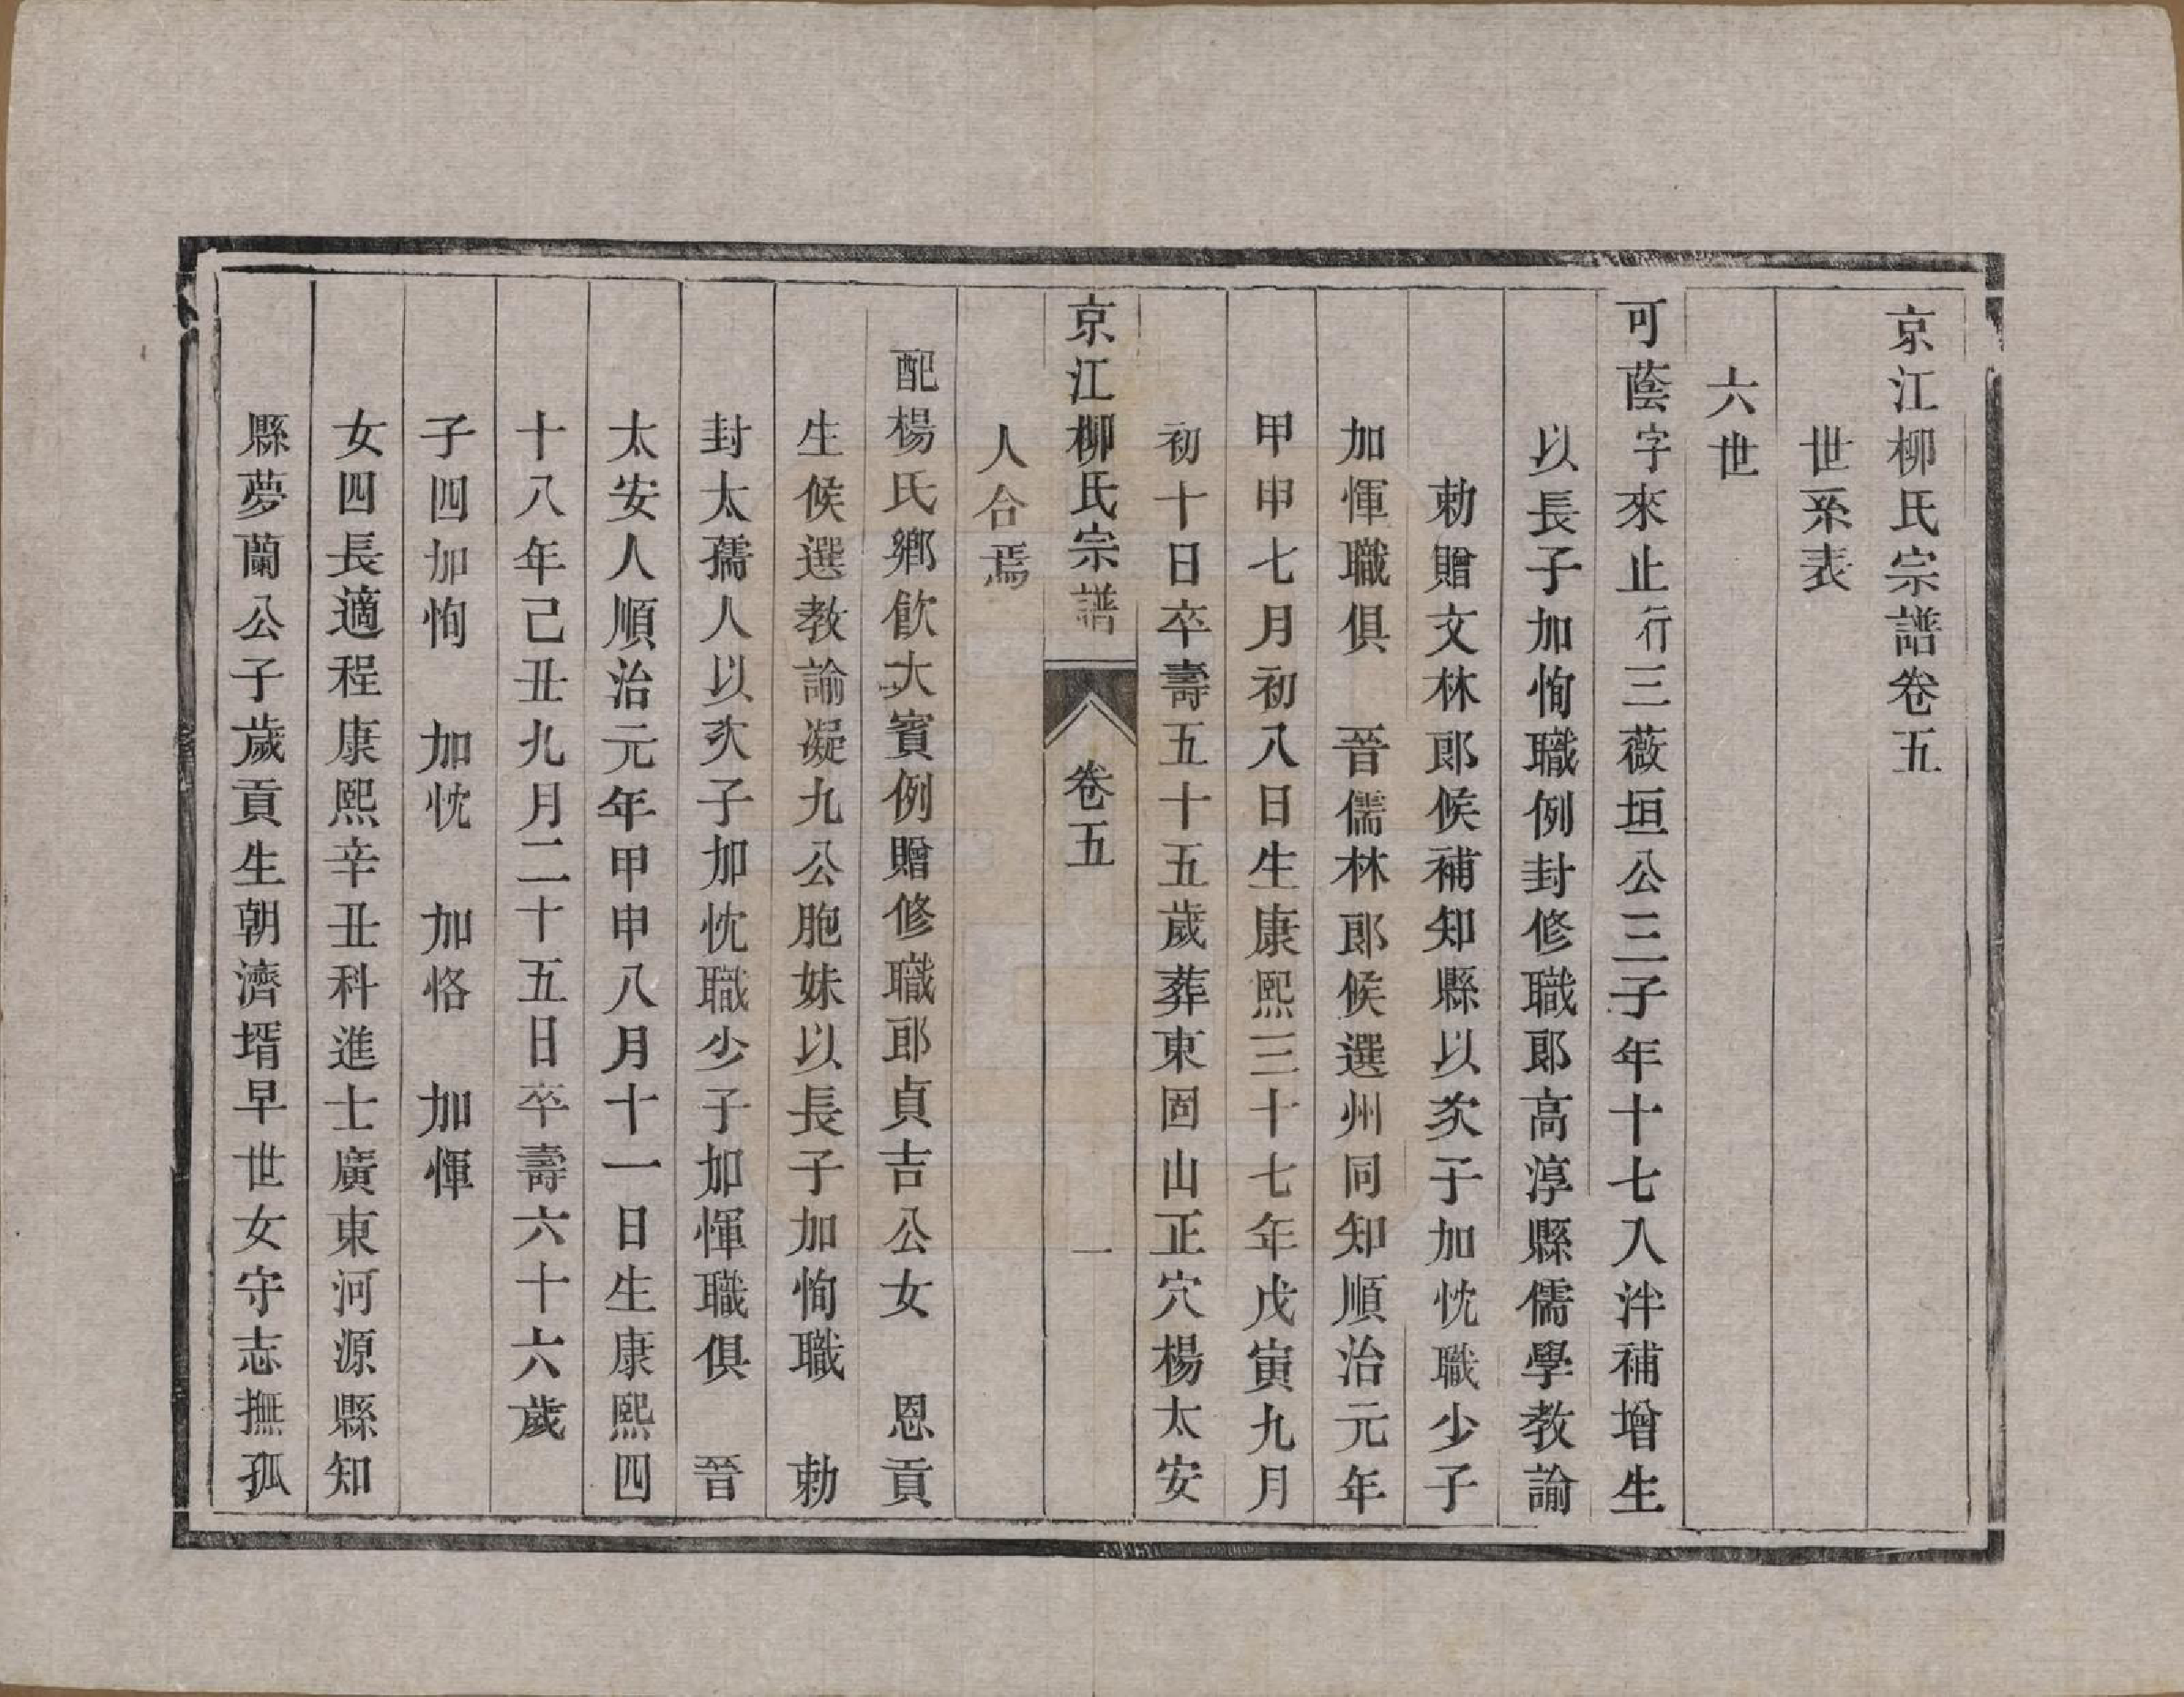 京江柳氏宗譜卷五
世系表
六世
可蔭字來止行三薇垣公三子年十七入泮補增生
以長子加恂職例封修職郎高淳縣儒學教諭
勅贈文林郎候補知縣以次子加忱職少子
加惲職俱　晉儒林郎候選州同知順治元年
甲申七月初八日生康熙三十七年戊寅九月
初十日卒壽五十五歲葬東固山正穴楊太安
人合焉
京江柳氏宗譜　卷五　一
配楊氏鄉飲大賓例贈修職郎貞吉公女　恩貢
生候選教諭凝九公胞妹以長子加恂職　勅
封太孺人以次子加忱職少子加惲職俱　晉
太安人順治元年甲申八月十一日生康熙四
十八年己丑九月二十五日卒壽六十六歲
子四加恂　加忱　加恪　加惲
女四長適程康熙辛丑科進士廣東河源縣知
縣夢蘭公子歲貢生朝濟壻早世女守志撫孤